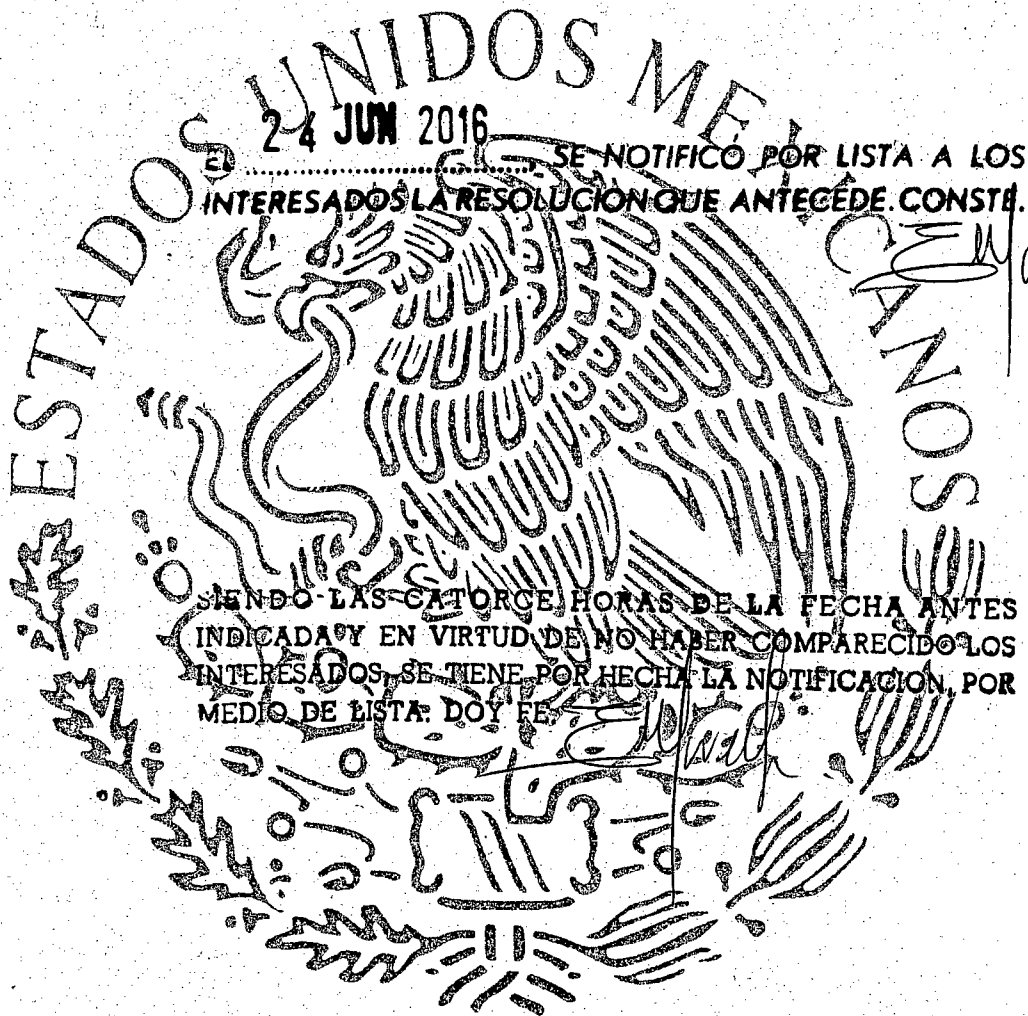 ESTADOS UNIDOS MEXICANOS
EL 24 JUN 2016 SE NOTIFICÓ POR LISTA A LOS
INTERESADOS LA RESOLUCIÓN QUE ANTECEDE. CONSTE.
SIENDO LAS CATORCE HORAS DE LA FECHA ANTES
INDICADA Y EN VIRTUD DE NO HABER COMPARECIDO LOS
INTERESADOS, SE TIENE POR HECHA LA NOTIFICACIÓN, POR
MEDIO DE LISTA. DOY FE.